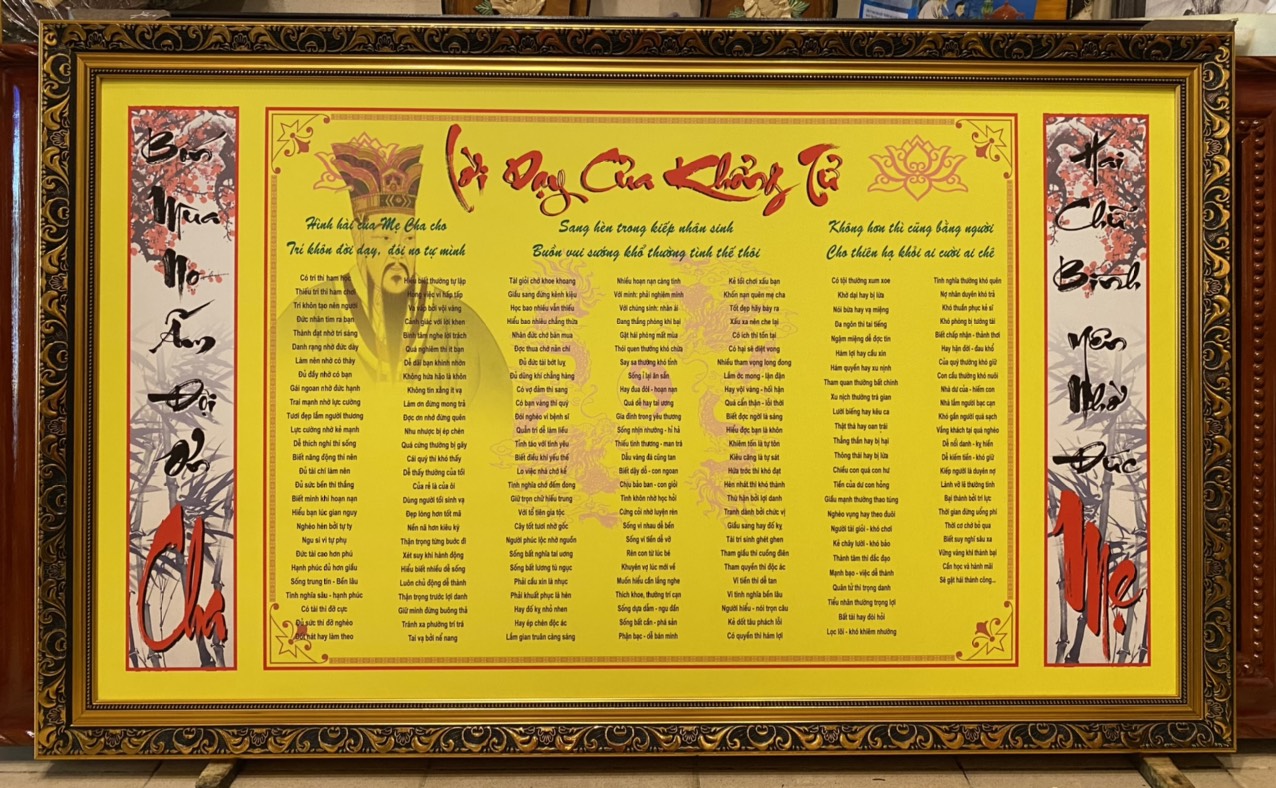 Bốn
Mùa
No
Ấm
Đội
Ơn
Cha
Lời Dạy Của Khổng Tử
Hình hài của Mẹ Cha cho
Trí khôn đời dạy, đói no tự mình
Có trí thì ham học
Thiếu trí thì ham chơi
Trí khôn tạo nên người
Đức nhân tìm ra bạn
Thành đạt nhờ trí sáng
Danh rạng nhờ đức dày
Làm nên nhờ có thày
Đủ đầy nhờ có bạn
Gái ngoan nhờ đức hạnh
Trai mạnh nhờ lực cường
Tươi đẹp lắm người thương
Lực cường nhờ kẻ mạnh
Dễ thích nghi thì sống
Biết năng động thì nên
Đủ tài chí làm nên
Đủ sức bền thì thắng
Biết mình khi hoạn nạn
Hiểu bạn lúc gian nguy
Nghèo hèn bởi tự ty
Ngu si vì tự phụ
Đức tài cao hơn phú
Hạnh phúc đủ hơn giầu
Sống trung tín - Bền lâu
Tình nghĩa sâu - hạnh phúc
Có tài thì đỡ cực
Đủ sức thì đỡ nghèo
Dốt nát hay làm theo
Hiểu biết thường tự lập
Hỏng việc vì hấp tấp
Va vấp bởi vội vàng
Cảnh giác với lời khen
Bình tâm nghe lời trách
Quá nghiêm thì ít bạn
Dễ dãi bạn khinh nhờn
Không hứa hão là khôn
Không tin xằng ít vạ
Làm ơn đừng mong trả
Được ơn nhớ đừng quên
Nhu nhược bị ép chèn
Quá cứng thường bị gãy
Cái quý thì khó thấy
Dễ thấy thường của tồi
Của rẻ là của ôi
Dùng người tồi sinh vạ
Đẹp lòng hơn tốt mã
Nền nã hơn kiêu kỳ
Thận trọng từng bước đi
Xét suy khi hành động
Hiểu biết nhiều dễ sống
Luôn chủ động dễ thành
Thận trọng trước lợi danh
Giữ mình đừng buông thả
Tránh xa phường trí trá
Tai vạ bởi nể nang
Sang hèn trong kiếp nhân sinh
Buồn vui sướng khổ thường tình thế thôi
Tài giỏi chớ khoe khoang
Giầu sang đừng kênh kiệu
Học bao nhiêu vẫn thiếu
Hiểu bao nhiêu chẳng thừa
Nhân đức chớ bán mua
Đọc thưa chớ nản chí
Đủ đức tài bớt luỵ
Đủ dũng khí chẳng hàng
Có vợ đảm thì sang
Có bạn vàng thì quý
Đói nghèo vì bệnh sĩ
Quẫn trí dễ làm liều
Tỉnh táo với tình yêu
Biết điều khi yếu thế
Lo việc nhà chớ kể
Tình nghĩa chớ đếm đong
Giữ trọn chữ hiếu trung
Với tổ tiên gia tộc
Cây tốt tươi nhờ gốc
Người phúc lộc nhờ nguồn
Sống bất nghĩa tai ương
Sống bất lương tù ngục
Phải cầu xin là nhục
Phải khuất phục là hèn
Hay đố kỵ nhỏ nhen
Hay ép chèn độc ác
Lắm gian truân càng sáng
Nhiều hoạn nạn càng tinh
Với mình: phải nghiêm minh
Với chúng sinh: nhân ái
Đang thẳng phòng khi bại
Gặt hái phòng mất mùa
Thói quen thường khó chừa
Say sa thường khó tỉnh
Sống ỉ lại ăn sẵn
Hay đua đòi - hoạn nạn
Quá dễ hay tai ương
Gia đình trong yêu thương
Sống nhịn nhường - hỉ hả
Thiếu tình thương - man trá
Dẫu vàng đá cũng tan
Biết dậy dỗ - con ngoan
Chịu bảo ban - con giỏi
Tinh khôn nhờ học hỏi
Cứng cỏi nhờ luyện rèn
Sống vì nhau dễ bền
Sống vì tiền dễ vỡ
Rèn con từ lúc bé
Khuyên vợ lúc mới về
Muốn hiểu cần lắng nghe
Thích khoe, thường trí cạn
Sống dựa dẫm - ngu đần
Sống bất cần - phá sản
Phận bạc - dễ bán mình
Kẻ tồi chơi xấu bạn
Khốn nạn quên mẹ cha
Tốt đẹp hãy bày ra
Xấu xa nên che lại
Có ích thì tồn tại
Có hại sẽ diệt vong
Nhiều tham vọng long đong
Lắm ớc mong - lận đận
Hay vội vàng - hối hận
Quá cẩn thận - lỗi thời
Biết đọc ngời là sáng
Hiểu đọc bạn là khôn
Khiêm tốn là tự tôn
Kiêu căng là tự sát
Hứa trớc thì khó đạt
Hèn nhát thì khó thành
Thù hận bởi lợi danh
Tranh dành bởi chức vị
Giầu sang hay đố kỵ
Tài trí sinh ghét ghen
Tham giầu thì cuồng điên
Tham quyền thì độc ác
Vì tiền thì dễ tan
Vì tình nghĩa bền lâu
Người hiểu - nói trọn câu
Kẻ dốt tâu phách lối
Có quyền thì hám lợi
Không hơn thì cũng bằng người
Cho thiên hạ khỏi ai cười ai chê
Có tội thường xum xoe
Khờ dại hay bị lừa
Nói bừa hay vạ miệng
Đa ngôn thì tai tiếng
Ngậm miệng dễ đợc tin
Hám lợi hay cầu xin
Hám quyền hay xu nịnh
Tham quan thường bất chính
Xu nịch thường trá gian
Lười biếng hay kêu ca
Thật thà hay oan trái
Thẳng thắn hay bị hại
Thông thái hay bị lừa
Chiều con quá con hư
Tiền của dư con hỏng
Giầu mạnh thường thao túng
Nghèo vụng hay theo đuôi
Người tài giỏi - khó chơi
Kẻ chây lười - khó bảo
Thành tâm thì đắc đạo
Mạnh bạo - việc dễ thành
Quân tử thì trọng danh
Tiểu nhân thường trọng lợi
Bất tài hay đòi hỏi
Lọc lõi - khó khiêm nhường
Tình nghĩa thường khó quên
Nợ nhân duyên khó trả
Khó thuần phục kẻ sĩ
Khó phòng bị tướng tài
Biết chấp nhận - thảnh thơi
Hay hận đời - đau khổ
Của quý thường khó giữ
Con cầu thường khó nuôi
Nhà dư của - hiếm con
Nhà lắm người bạc cạn
Khó gần người quá sạch
Vắng khách tại quá nghèo
Dễ nổi danh - kỵ hiền
Dễ kiếm tiền - khó giữ
Kiếp người là duyên nợ
Lành vỡ lẽ thường tình
Bại thành bởi trí lực
Thời gian đừng uổng phí
Thời cơ chớ bỏ qua
Biết suy nghĩ sâu xa
Vững vàng khi thành bại
Cần học và hành mãi
Sẽ gặt hái thành công...
Hai
Chữ
Bình
Yên
Nhờ
Đức
Mẹ